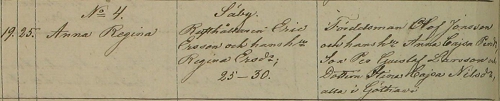 No 4. Säby.
19. 25. Anna Regina
Rotehållaren Eric
Ersson och hans h:u
Regina Ersdr;
25-30.
Torddelsman Olof Jonsson
och hans h:u Anna Cajsa Persdr,
Son Per Gustaf Larsson och
Dottern Stina Cajsa Nilsdr,
alla i Götkana